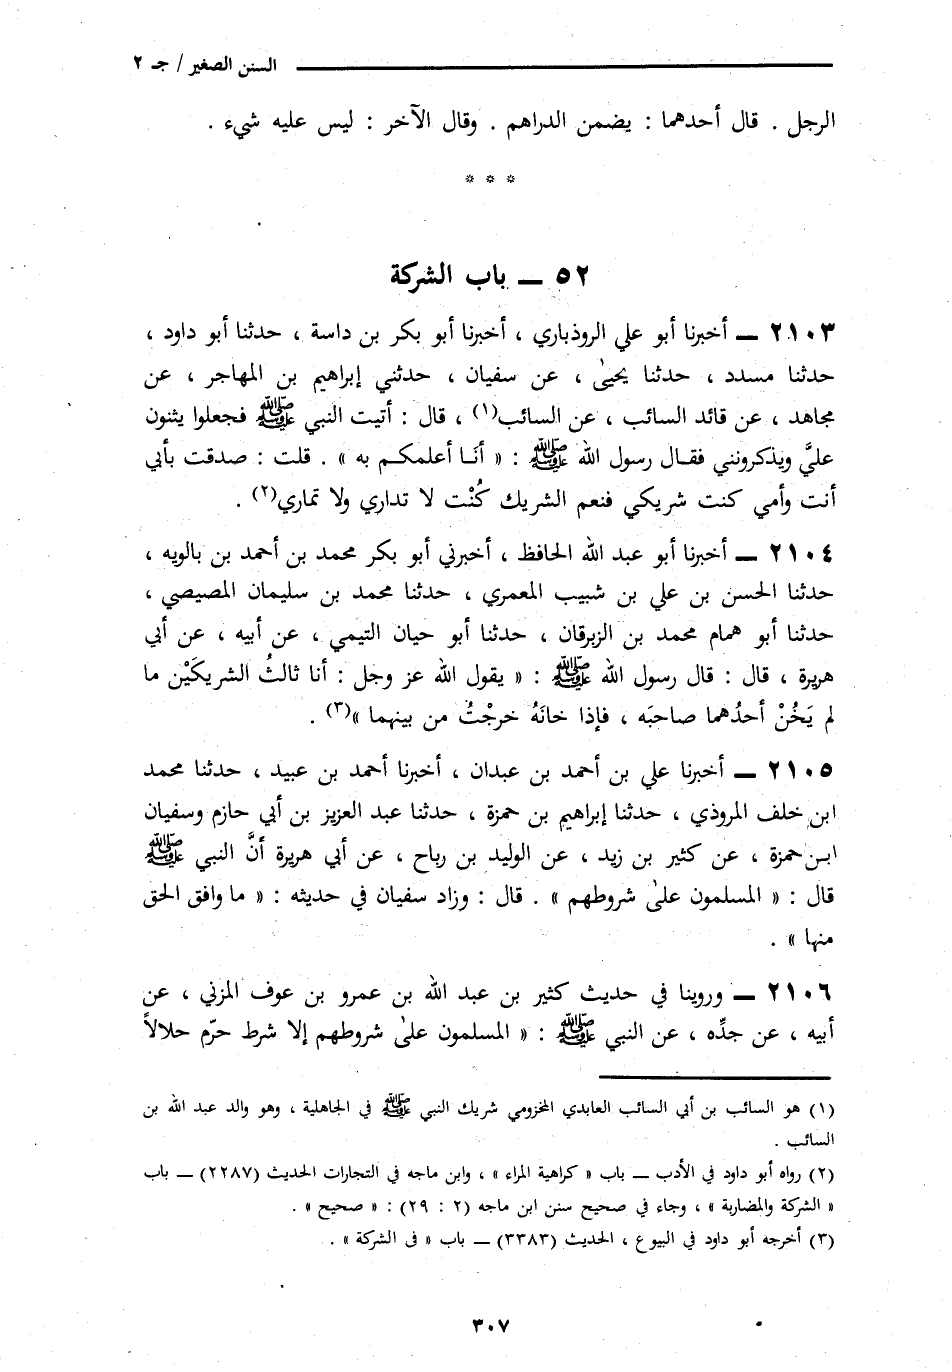 السنن الصغير / جـ ٢
الرجل . قال أحدهما : يضمن الدراهم . وقال الآخر : ليس عليه شيء .
* * *
٥٢ ــ باب الشركة
٢١٠٣ ــ أخبرنا أبو علي الروذباري ، أخبرنا أبو بكر بن داسة ، حدثنا أبو داود ،
حدثنا مسدد ، حدثنا يحيىٰ ، عن سفيان ، حدثني إبراهيم بن المهاجر ، عن
مجاهد ، عن قائد السائب ، عن السائب(١) ، قال : أتيت النبي ﷺ فجعلوا يثنون
عليَّ ويذكرونني فقـال رسول الله ﷺ : « أنَـا أعلمكـم به » . قلت : صدقت بأبي
أنت وأمي كنت شريكي فنعم الشريك كُنْت لا تداري ولا تماري(٢) .
٢١٠٤ ــ أخبرنا أبو عبد الله الحافظ ، أخبرني أبو بكر محمد بن أحمد بن بالويه ،
حدثنا الحسن بن علي بن شبيب المعمري ، حدثنا محمد بن سليمان المصيصي ،
حدثنا أبو همام محمد بن الزبرقان ، حدثنا أبو حيان التيمي ، عن أبيه ، عن أبي
هريرة ، قال : قال رسول الله ﷺ : « يقول الله عز وجل : أنا ثالثُ الشريكَيْن ما
لم يَخُنْ أحدُهما صاحبَه ، فإذا خانَهُ خرجْتُ من بينهما »(٣) .
٢١٠٥ ــ أخبرنا علي بن أحمد بن عبدان ، أخبرنا أحمد بن عبيد ، حدثنا محمد
ابن خلف المروذي ، حدثنا إبراهيم بن حمزة ، حدثنا عبد العزيز بن أبي حازم وسفيان
ابـن حمزة ، عن كثير بن زيد ، عن الوليد بن رباح ، عن أبي هريرة أنَّ النبي ﷺ
قال : « المسلمون علىٰ شروطهم » . قال : وزاد سفيان في حديثه : « ما وافق الحق
منها » .
٢١٠٦ ــ وروينا في حديث كثير بن عبد الله بن عمرو بن عوف المزني ، عن
أبيه ، عن جدِّه ، عن النبي ﷺ : « المسلمون علىٰ شروطهم إلا شرط حرّم حلالاً
(١) هو السائب بن أبي السائب العابدي المخزومي شريك النبي ﷺ في الجاهلية ، وهو والد عبد الله بن
السائب .
(٢) رواه أبو داود في الأدب ــ باب « كراهية المراء » ، وابن ماجه في التجارات الحديث (٢٢٨٧) ــ باب
« الشركة والمضاربة » ، وجاء في صحيح سنن ابن ماجه (٢ : ٢٩) : « صحيح » .
(٣) أخرجه أبو داود في البيوع ، الحديث (٣٣٨٣) ــ باب « فى الشركة » .
٣٠٧